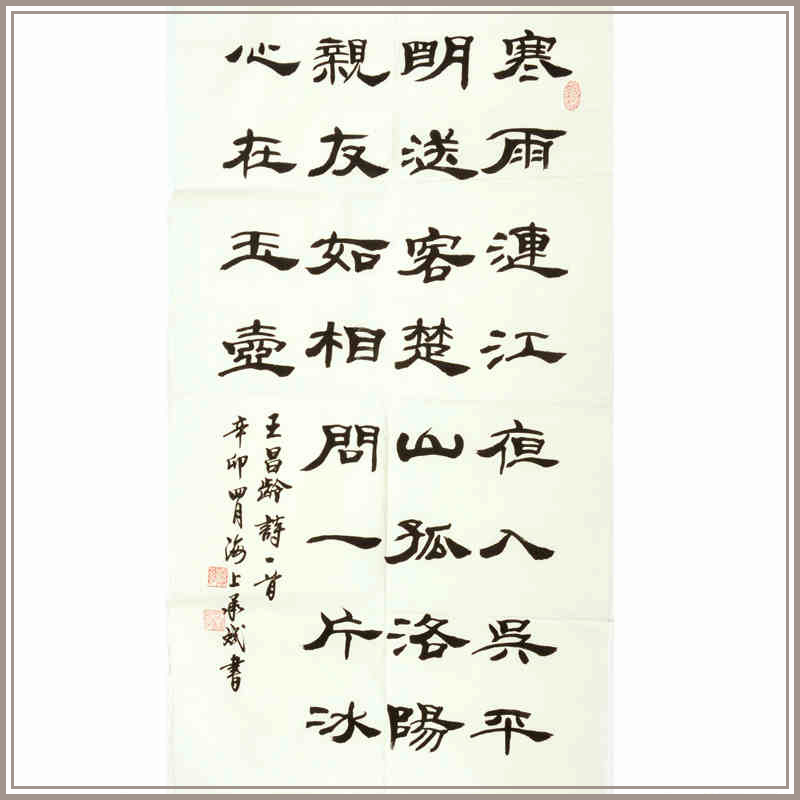 寒雨漣江夜入吳平
明送客楚山孤洛陽
親友如相問一片冰
心在玉壺
王昌齡詩一首
辛卯四月海上承斌書